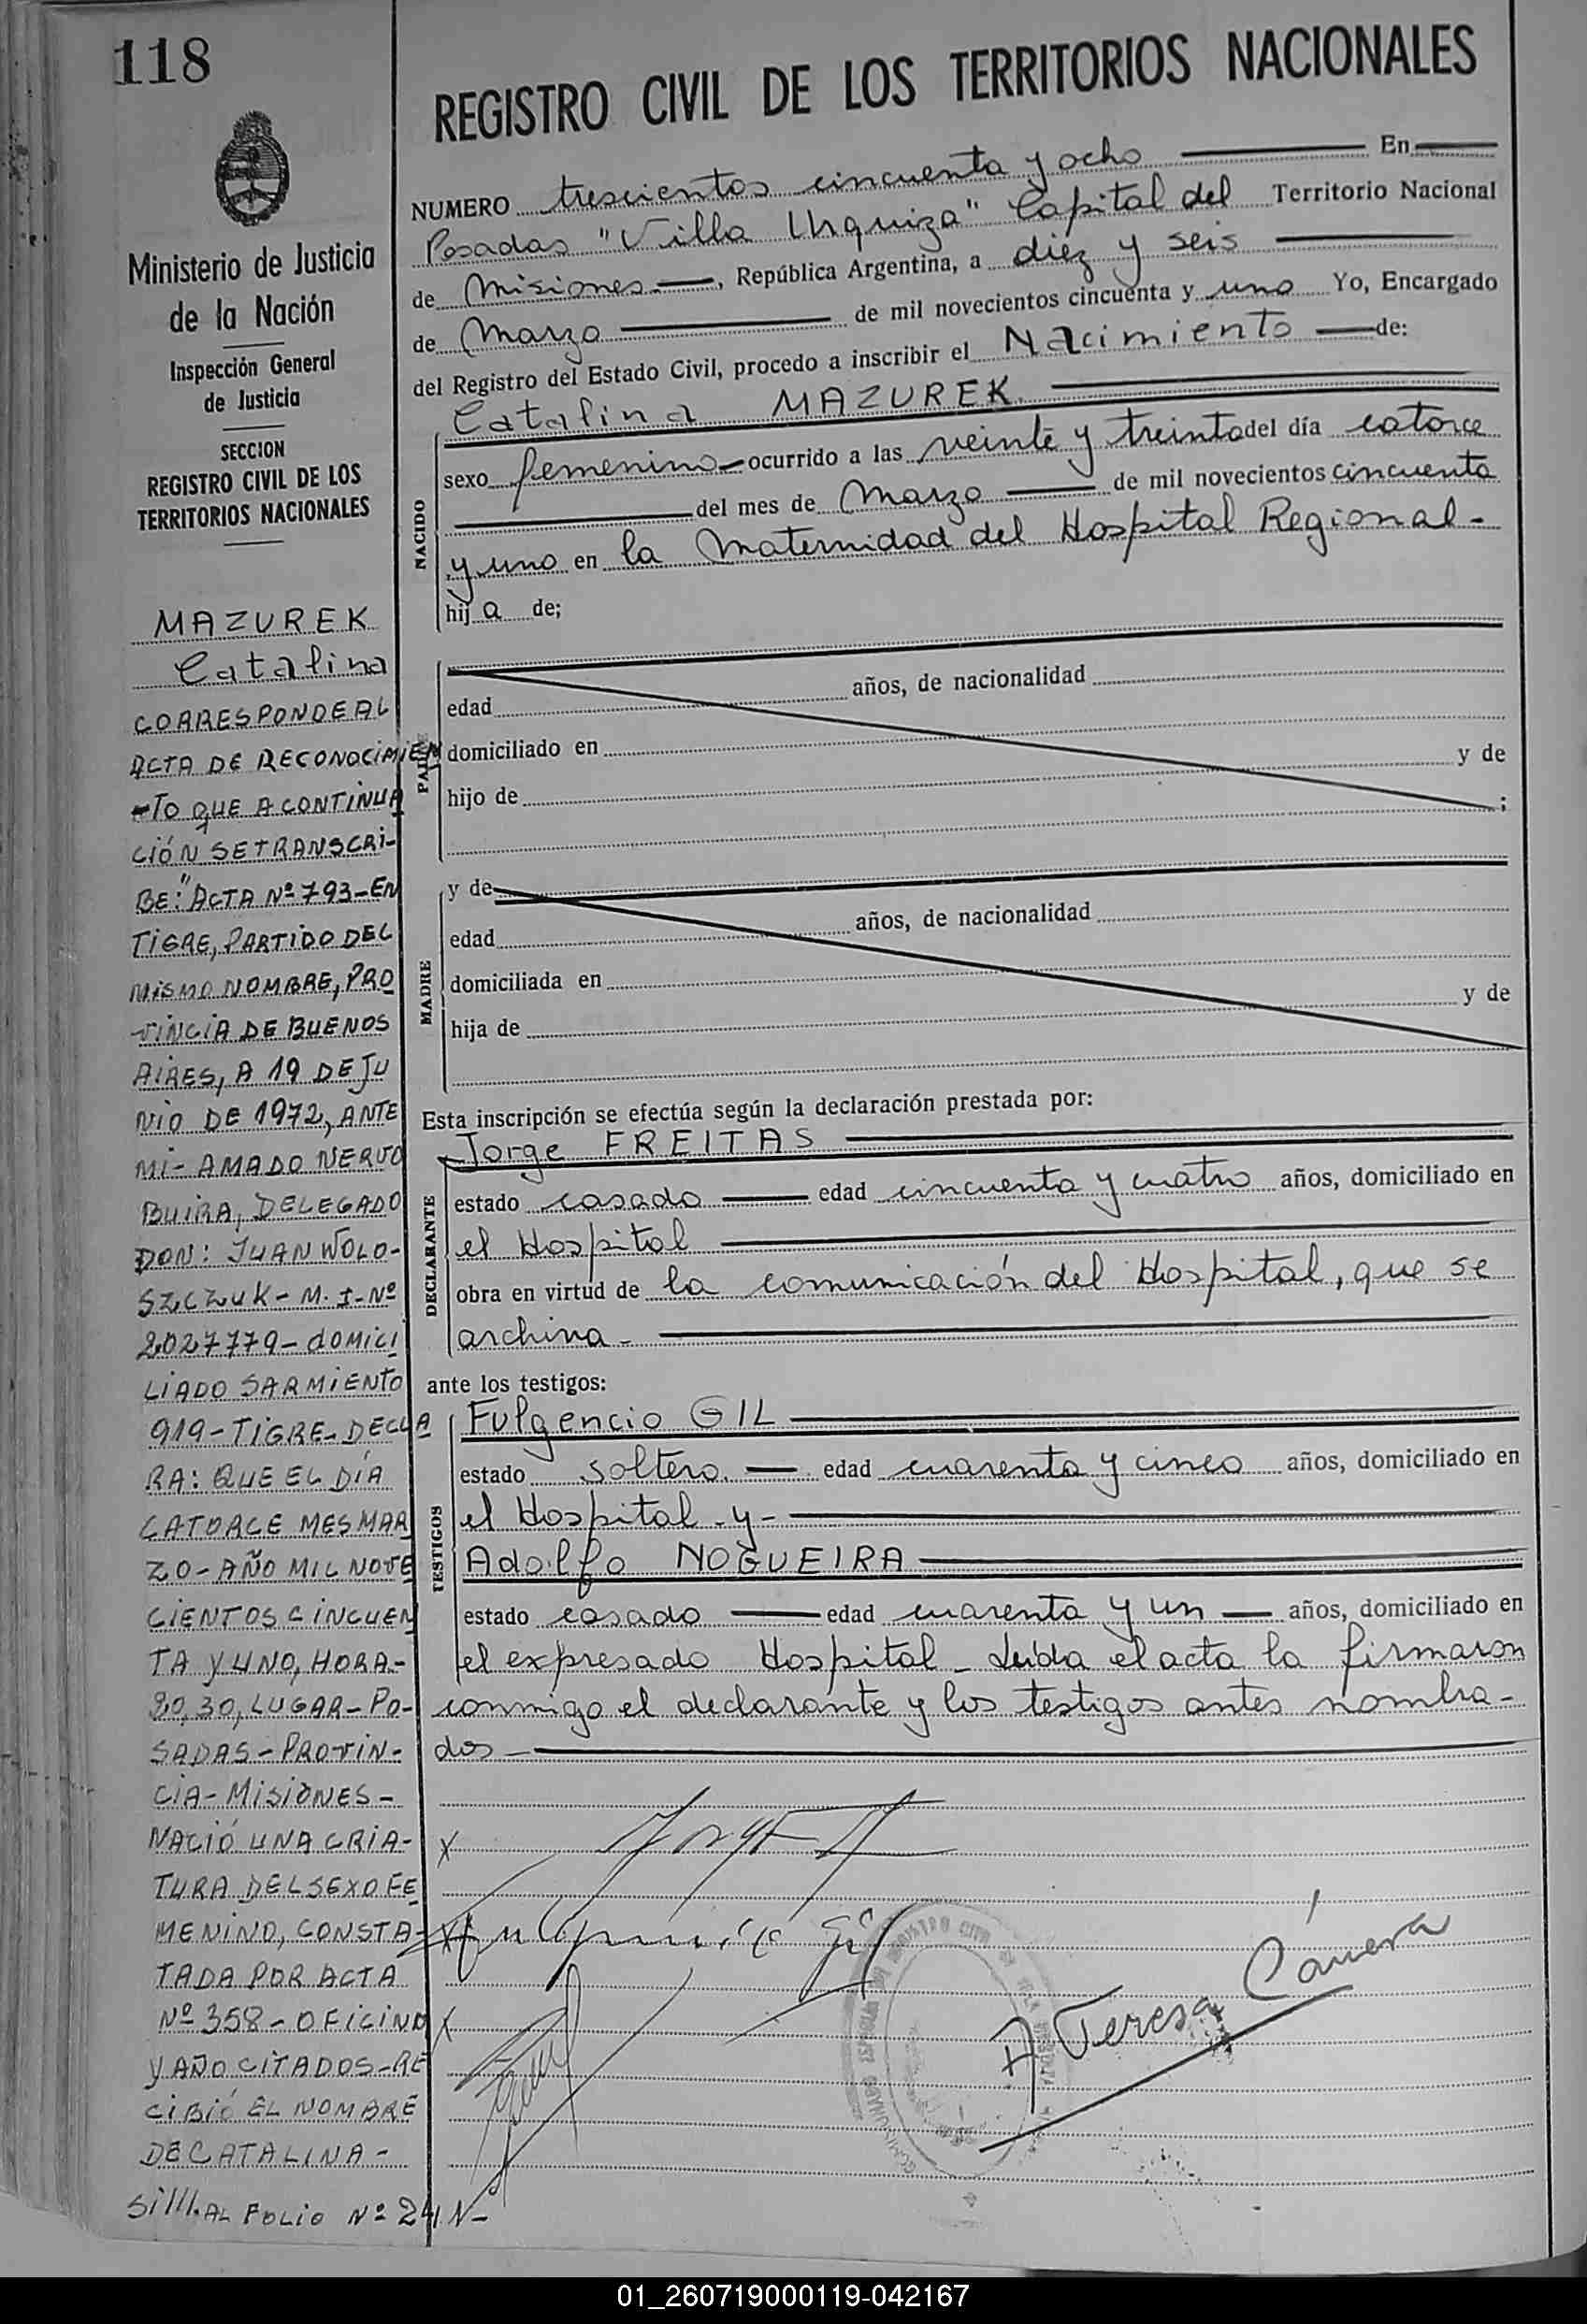 118
REGISTRO CIVIL DE LOS TERRITORIOS NACIONALES
Ministerio de Justicia
de la Nación
Inspección General
de Justicia
SECCION
REGISTRO CIVIL DE LOS
TERRITORIOS NACIONALES
MAZUREK
Catalina
CORRESPONDE AL
ACTA DE RECONOCIMIEN
-TO QUE A CONTINUA
CIÓN SE TRANSCRI-
BE: "ACTA Nº 793-EN
TIGRE, PARTIDO DEL
MISMO NOMBRE, PRO
VINCIA DE BUENOS
AIRES, A 19 DE JU
NIO DE 1972, ANTE
MI- AMADO NERVO
BUIRA, DELEGADO
DON: JUAN WOLO-
SZCZUK- M.I-Nº
2.027779- DOMICI
LIADO SARMIENTO
919-TIGRE-DECLA
RA: QUE EL DÍA
CATORCE MES MAR
ZO-AÑO MIL NOVE
CIENTOS CINCUEN
TA Y UNO, HORA-
20,30, LUGAR-PO-
SADAS-PROVIN-
CIA-MISIONES-
NACIÓ UNA CRIA-
TURA DEL SEXO FE
MENINO, CONSTA-
TADA POR ACTA
Nº 358-OFICINA
Y AÑO CITADOS-RE
CIBIÓ EL NOMBRE
DE CATALINA-
Si///.AL FOLIO Nº 241 N-
NUMERO trescientos cincuenta y ocho En
Posadas "Villa Urquiza" Capital del Territorio Nacional
de Misiones, República Argentina, a diez y seis
de Marzo de mil novecientos cincuenta y uno Yo, Encargado
del Registro del Estado Civil, procedo a inscribir el Nacimiento de:
NACIDO
Catalina MAZUREK.
sexo femenino ocurrido a las veinte y treinta del día catorce
del mes de Marzo de mil novecientos cincuenta
y uno en la Maternidad del Hospital Regional-
hij a de;
PADRE
edad años, de nacionalidad
domiciliado en
hijo de y de
;
MADRE
y de
edad años, de nacionalidad
domiciliada en
hija de y de
Esta inscripción se efectúa según la declaración prestada por:
DECLARANTE
Jorge FREITAS
estado casado edad cincuenta y cuatro años, domiciliado en
el Hospital
obra en virtud de la comunicación del Hospital, que se
archiva-
ante los testigos:
TESTIGOS
Fulgencio GIL
estado soltero. edad cuarenta y cinco años, domiciliado en
el Hospital-y-
Adolfo NOGUEIRA
estado casado edad cuarenta y un años, domiciliado en
el expresado Hospital-Leída el acta la firmaron
conmigo el declarante y los testigos antes nombra-
dos-
x
x Fulgencio Gil
x
A Teresa Cámera
01_260719000119-042167